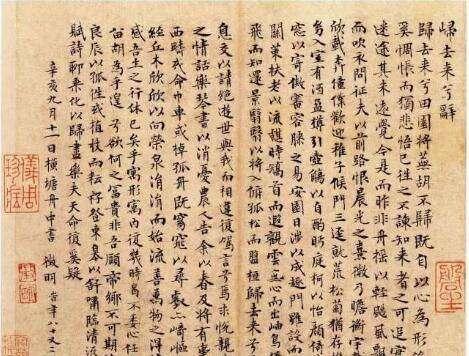 歸去来兮辭
歸去来兮田園將蕪胡不歸既自以心為形役
奚惆悵而獨悲悟已往之不諫知来者之可追
迷途其未遠覺今是而昨非舟搖以輕颺風飄
而吹衣問征夫以前路恨晨光之熹微乃瞻衡宇載
欣載奔僮僕歡迎稚子候門三逕就荒松菊猶存
幼入室有酒盈樽引壺觴以自酌眄庭柯以怡顔倚
窓以寄傲審容膝之易安園日涉以成趣門雖設而
關策扶老以流憩時矯首而遐觀雲無心而出岫鳥
飛而知還景翳翳以將入撫孤松而盤桓歸去来兮
息交以請絕遊世與我而相違復駕言兮焉求悅親
之情話樂琴書以消憂農人告余以春及將有事
西疇或命巾車或棹孤舟既窈窕以尋壑亦崎嶇
經丘木欣欣以向榮泉涓涓而始流善萬物之得
感吾生之行休已矣乎寓形寓内復幾時曷不委心任
留胡為乎遑遑兮欲何之富貴非吾願帝鄉不可期
良辰以孤往或植杖而耘耔登東皋以舒嘯臨清流
賦詩聊乘化以歸盡樂夫天命復奚疑
辛亥九月十一日横塘舟中書 徵明 時年八十又二